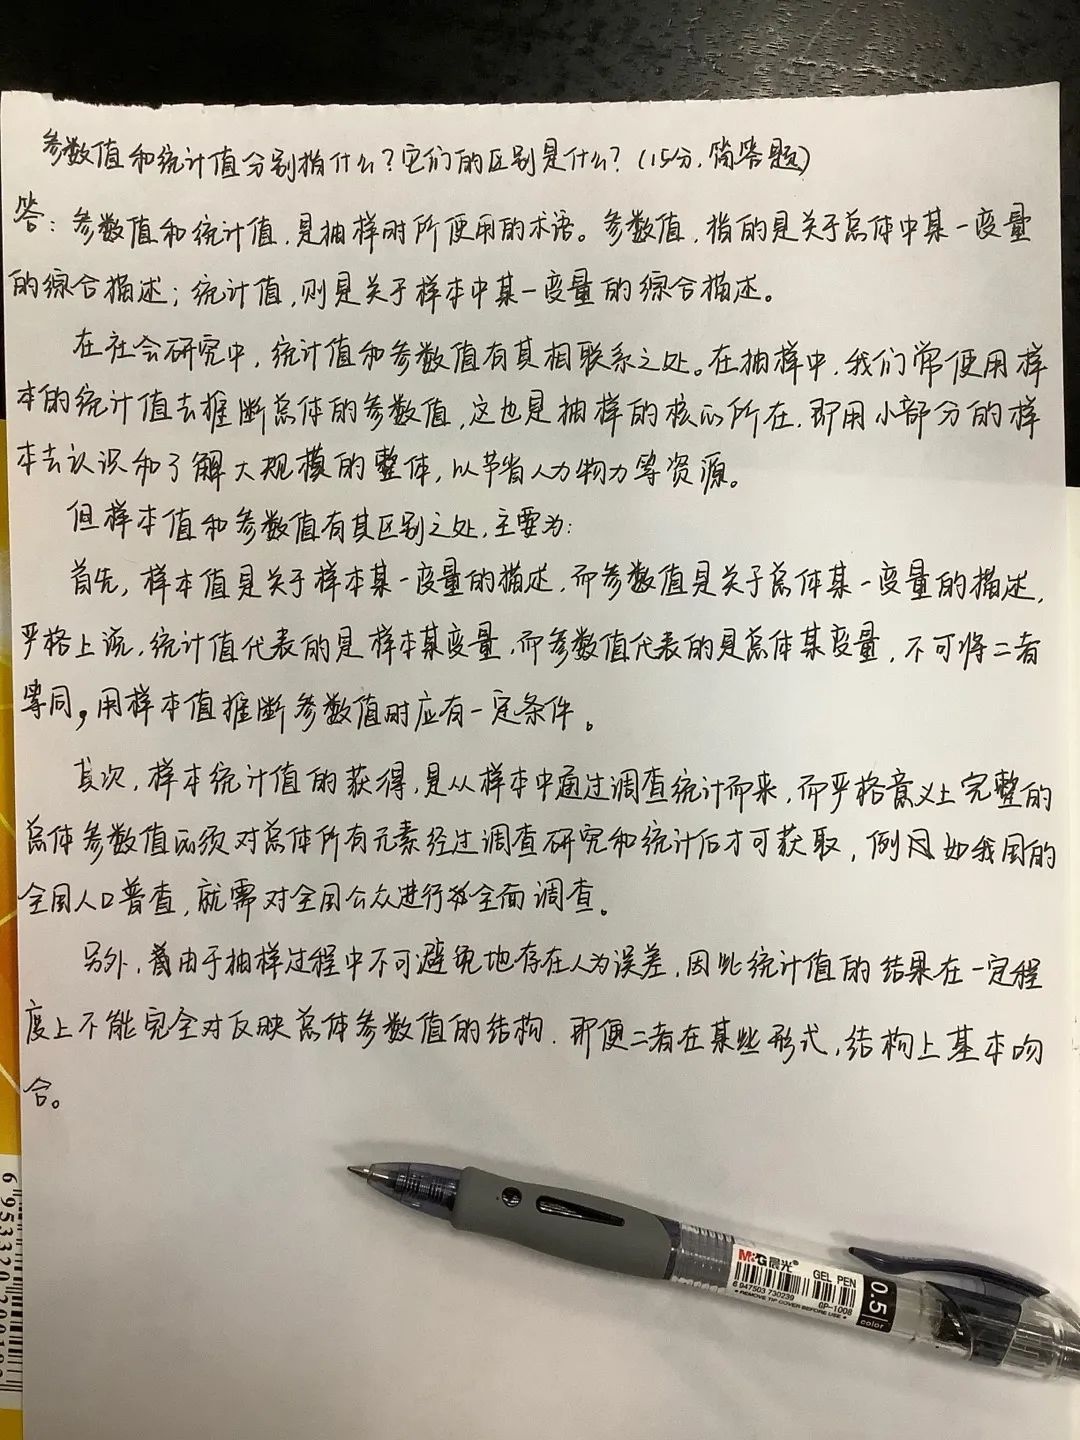 参数值和统计值分别指什么？它们的区别是什么？（15分，简答题）
答：参数值和统计值，是抽样时所使用的术语。参数值，指的是关于总体中某一变量
的综合描述；统计值，则是关于样本中某一变量的综合描述。
在社会研究中，统计值和参数值有其相联系之处。在抽样中，我们常使用样
本的统计值去推断总体的参数值，这也是抽样的核心所在，即用小部分的样
本去认识和了解大规模的整体，以节省人力物力等资源。
但样本值和参数值有其区别之处，主要为：
首先，样本值是关于样本某一变量的描述，而参数值是关于总体某一变量的描述，
严格上说，统计值代表的是样本某变量，而参数值代表的是总体某变量，不可将二者
等同，用样本值推断参数值时应有一定条件。
其次，样本统计值的获得，是从样本中通过调查统计而来，而严格意义上完整的
总体参数值必须对总体所有元素经过调查研究和统计后才可获取，例如我国的
全国人口普查，就需对全国公众进行全面调查。
另外，由于抽样过程中不可避免地存在人为误差，因此统计值的结果在一定程
度上不能完全对反映总体参数值的结构，即便二者在某些形式，结构上基本吻
合。
M&G晨光®
GEL PEN
0.5
color
6 947503 730239
GP-1008
• REMOVE TIP COVER BEFORE USE •